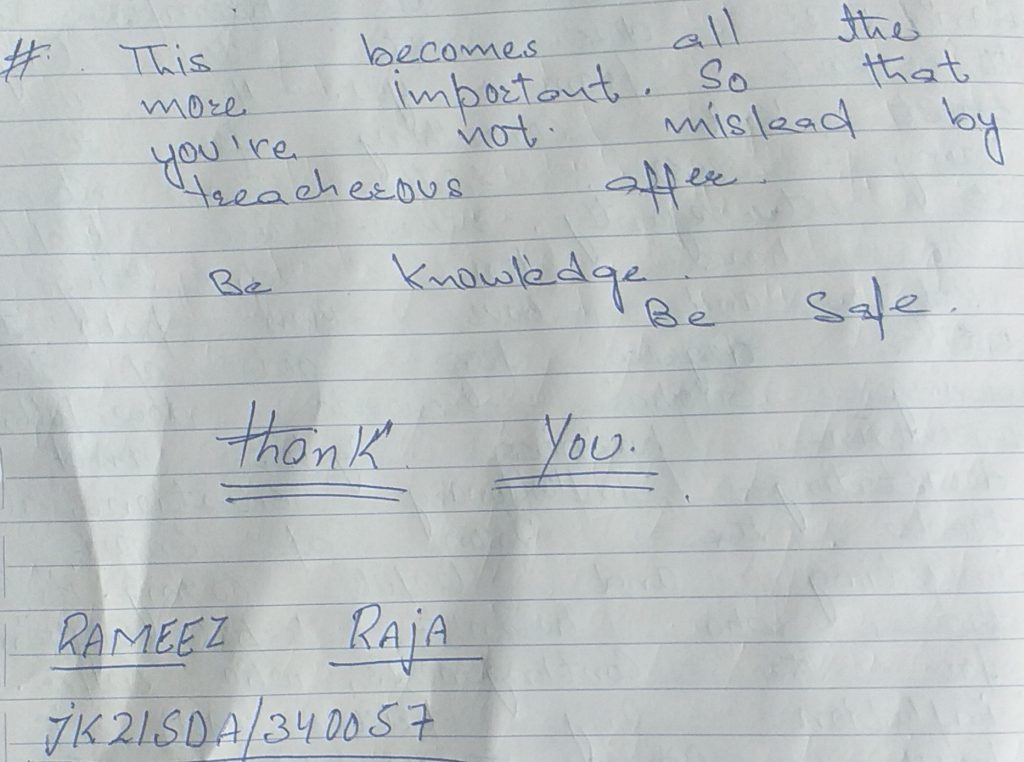 # This becomes all the
more important. So that
you're not. mislead by
treacherous offer.
Be Knowledge.
Be Safe.
Thank You.
RAMEEZ RAjA
JK21SDA/340057